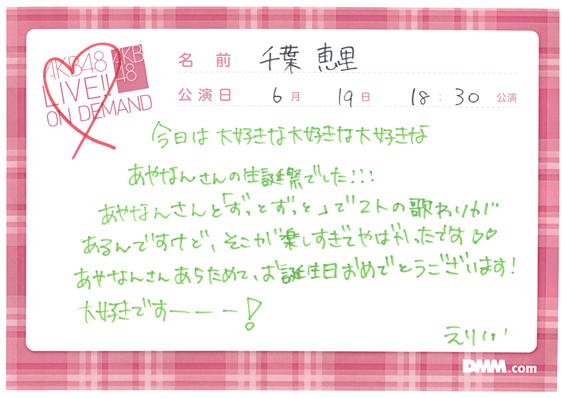 AKB48
LIVE!!
ON DEMAND
AKB
48
名 前 千葉 恵里
公演日 6月 19日 18:30 公演
今日は大好きな大好きな大好きな
あやなんさんの生誕祭でした!!!
あやなんさんと「ずっとずっと」で2人の歌わりが
あるんですけど、そこが楽しすぎてやばかったです♡♡
あやなんさんあらためて、お誕生日おめでとうございます!
大好きですーーー!
えりい
DMM.com